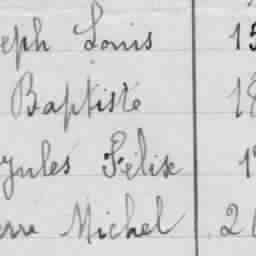 eph Louis 15
Baptiste 18
Jules Félix 1
erre Michel 21